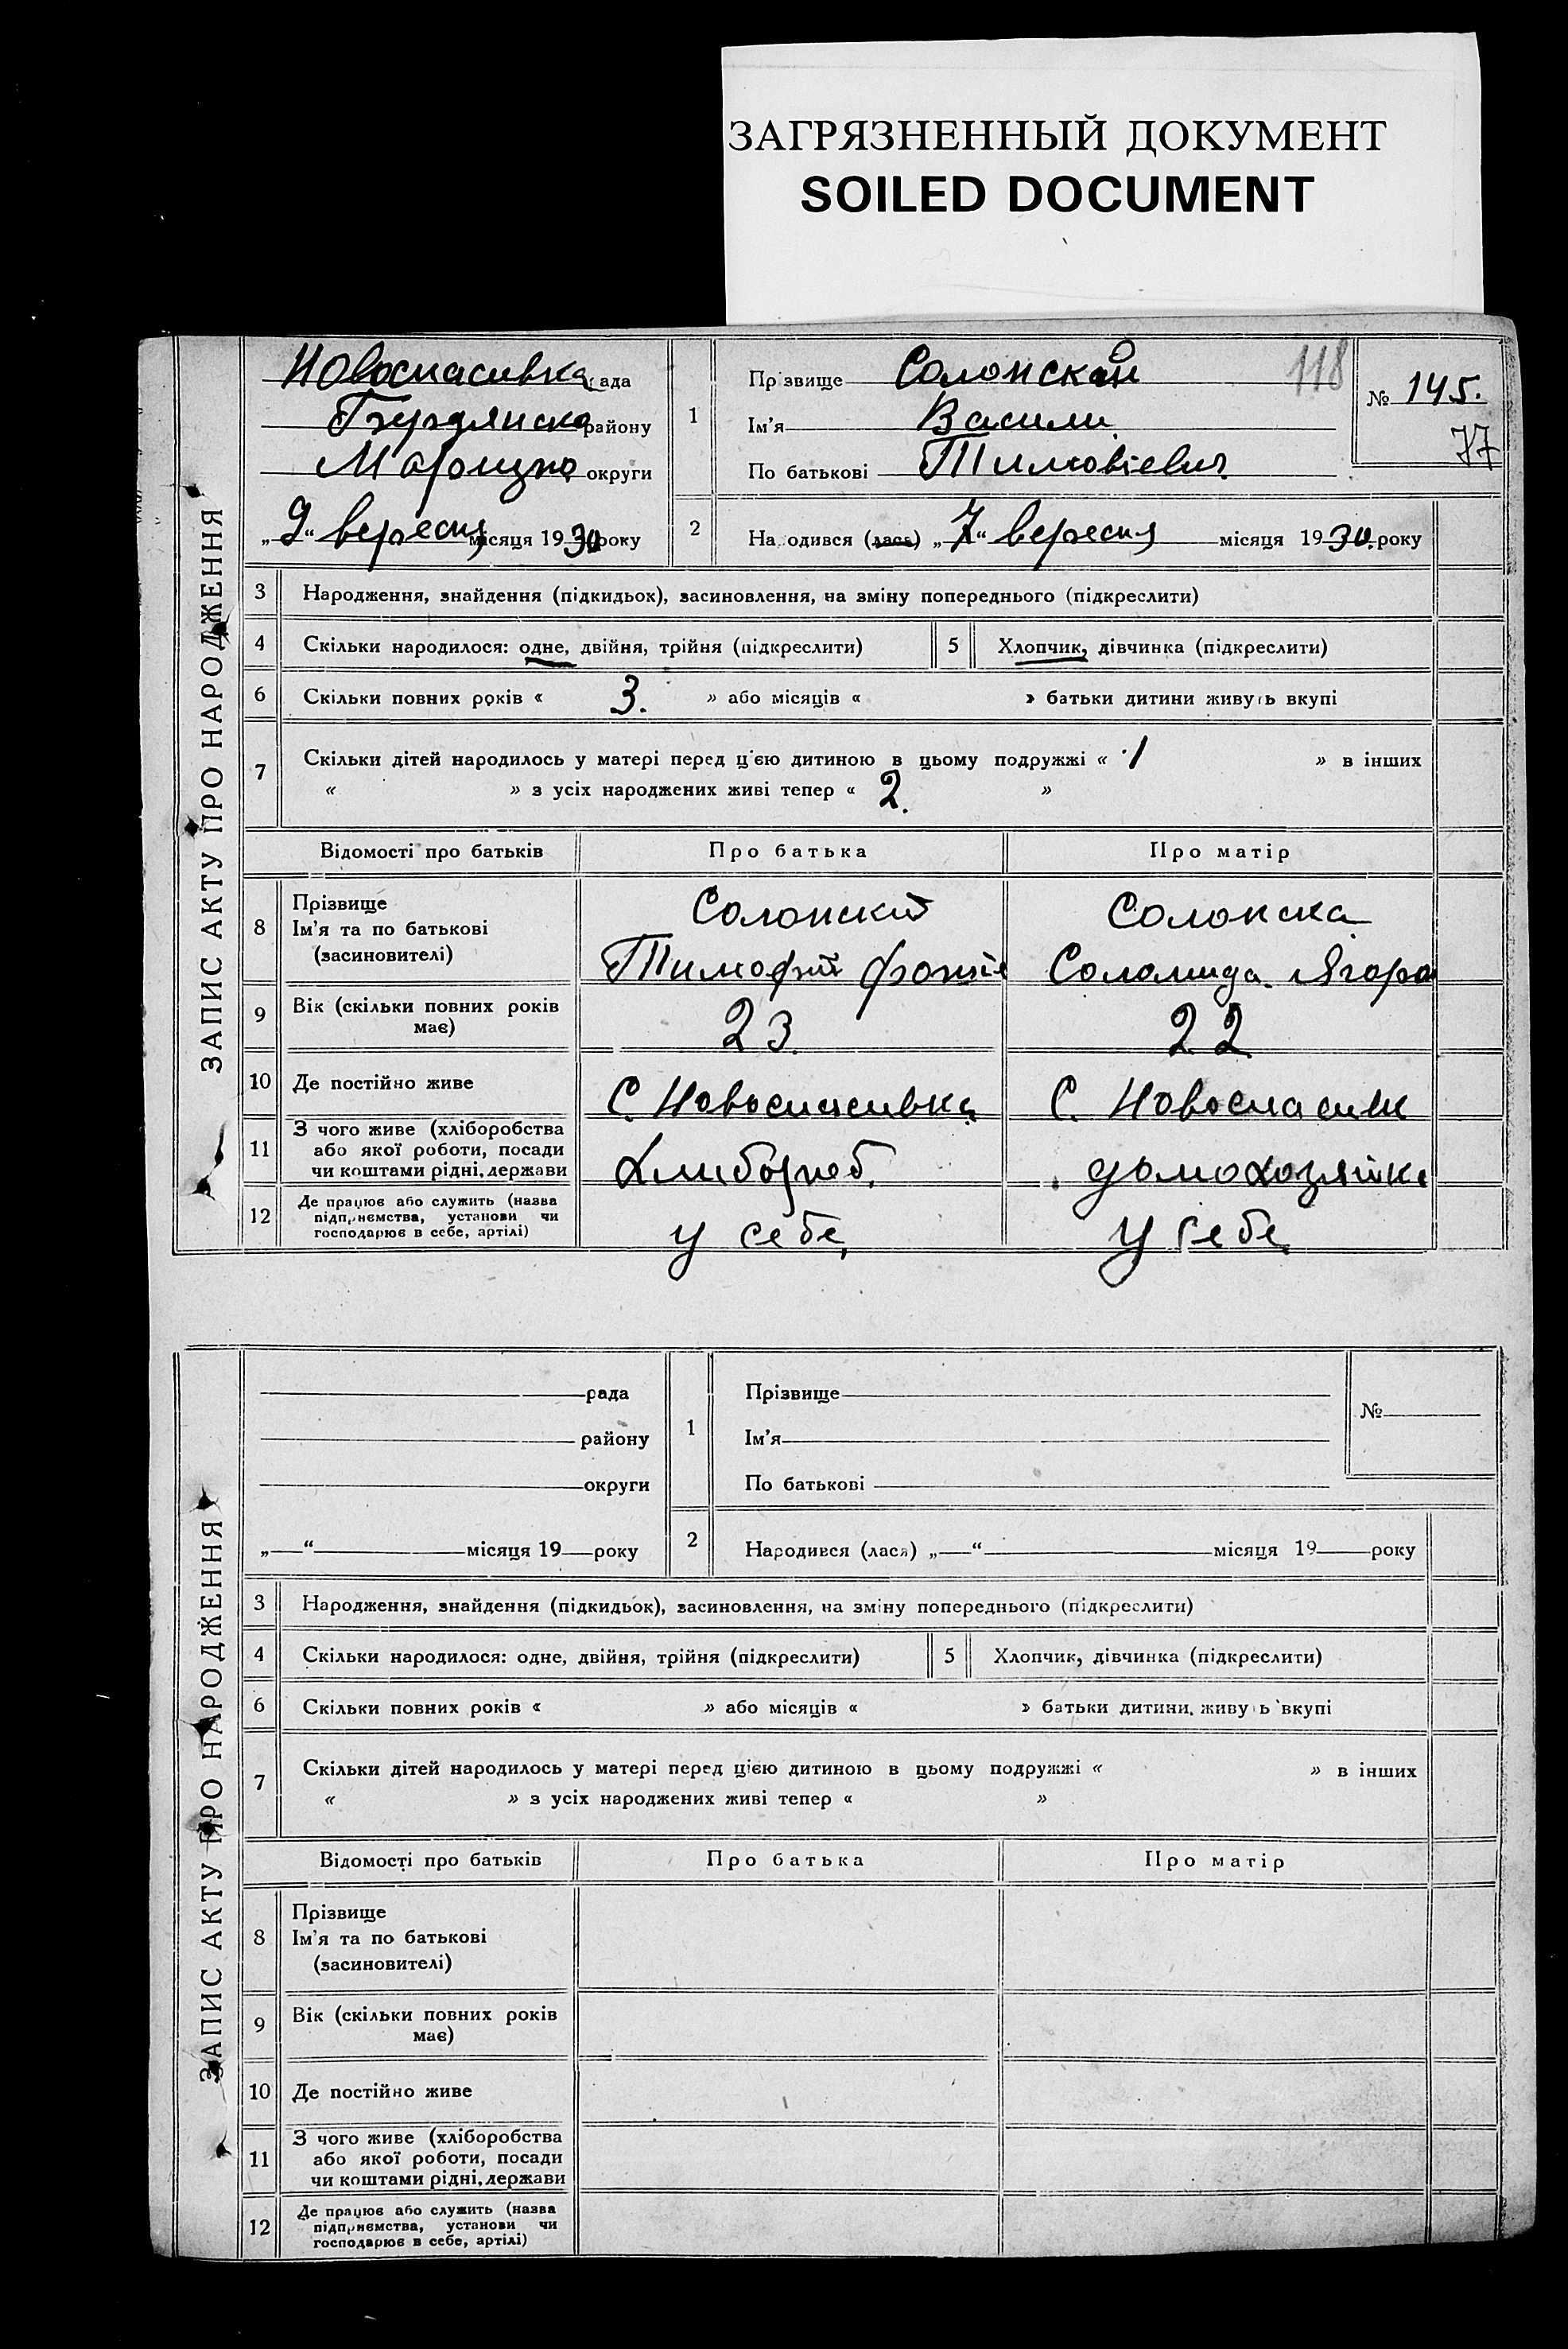 ЗАГРЯЗНЕННЫЙ ДОКУМЕНТ
SOILED DOCUMENT
ЗАПИС АКТУ ПРО НАРОДЖЕННЯ
Новоспасивка рада
району
округи
„9“ вересня місяця 1930 року
1
Прізвище Солонский
Ім’я Васили
По батькові Тимовіевич
118
№ 145.
77
2
Народився (лася) „7“ вересня місяця 1930. року
3 Народження, знайдення (підкидьок), засиновлення, на зміну попереднього (підкреслити)
4 Скільки народилося: одне, двійня, трійня (підкреслити)
5 Хлопчик, дівчинка (підкреслити)
6 Скільки повних років « 3. » або місяців « » батьки дитини живуть вкупі
7 Скільки дітей народилось у матері перед цією дитиною в цьому подружжі « 1 » в інших
« » з усіх народжених живі тепер « 2. »
Відомості про батьків Про батька Про матір
8 Прізвище
Ім’я та по батькові
(засиновителі)
Солонский
Тимофий
Солонска
Соломида
9 Вік (скільки повних років
має)
23.
22
10 Де постійно живе
С. Новоспасивка
С. Новоспасивк
11 З чого живе (хліборобства
або якої роботи, посади
чи коштами рідні, держави
Хлибороб.
домохозяйка
12 Де працює або служить (назва
підприємства, установи чи
господарює в себе, артілі)
у себе,
у себе
ЗАПИС АКТУ ПРО НАРОДЖЕННЯ
рада
району
округи
„ “ місяця 19 року
1
Прізвище
Ім’я
По батькові
№
2
Народився (лася) „ “ місяця 19 року
3 Народження, знайдення (підкидьок), засиновлення, на зміну попереднього (підкреслити)
4 Скільки народилося: одне, двійня, трійня (підкреслити)
5 Хлопчик, дівчинка (підкреслити)
6 Скільки повних років « » або місяців « » батьки дитини живуть вкупі
7 Скільки дітей народилось у матері перед цією дитиною в цьому подружжі « » в інших
« » з усіх народжених живі тепер « »
Відомості про батьків Про батька Про матір
8 Прізвище
Ім’я та по батькові
(засиновителі)
9 Вік (скільки повних років
має)
10 Де постійно живе
11 З чого живе (хліборобства
або якої роботи, посади
чи коштами рідні, держави
12 Де працює або служить (назва
підприємства, установи чи
господарює в себе, артілі)